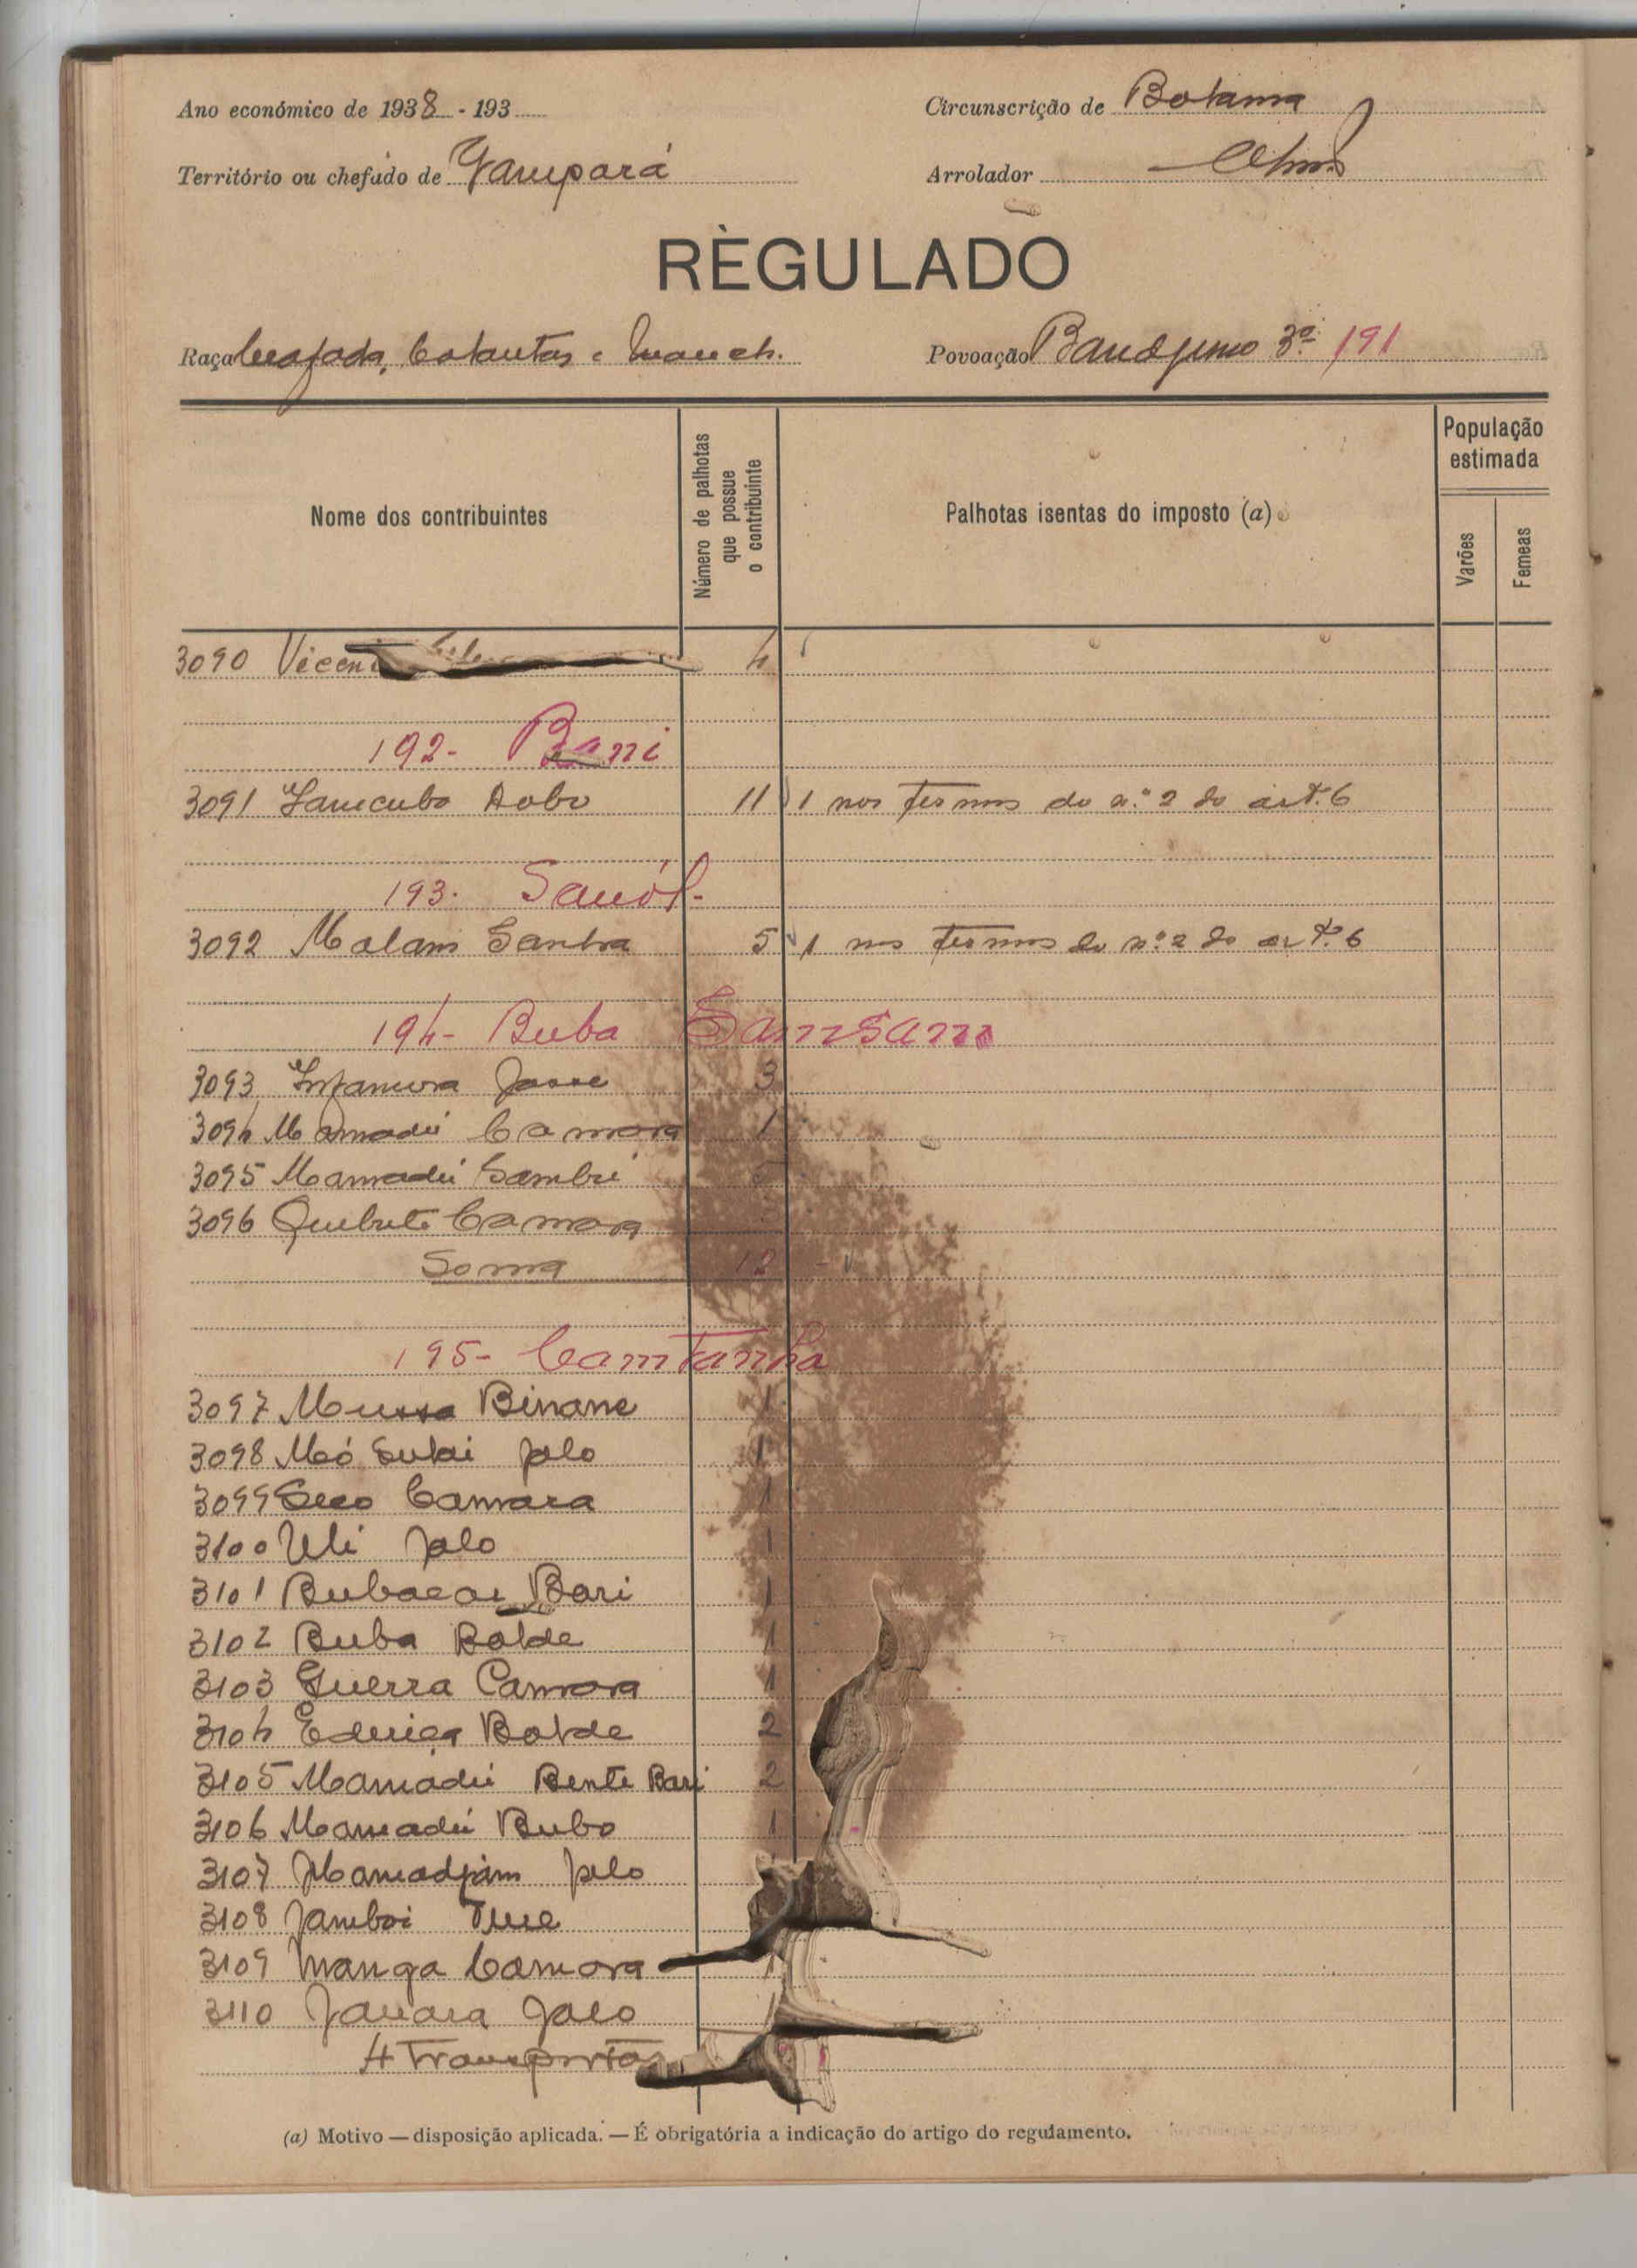 Ano económico de 1938 - 193
Circunscrição de Bolama
Território ou chefado de Gampará
Arrolador
RÈGULADO
Raça Beafada, Balantas e Manch.
Povoação Bandjemo 3º 191
Nome dos contribuintes
Número de palhotas que possue o contribuinte
Palhotas isentas do imposto (a)
População estimada
Varões
Femeas
3090 Vicen 4
192- Bani
3091 11 1 nos termos do n.º 2 do art.º 6
193.
3092 Malam Sanha 5 1 nos termos do n.º 2 do art.º 6
194- Buba Samsam
3093 Infamura Jasse 3
3094 Mamadú Camara 1
3095 Mamadú Sambú 5
3096 Quebuto Camara
Soma 12
195- Camtanha
3097 Mussa Binane 1
3098 Mó Sulai Jalo 1
3099 Seco Camara 1
3100 Uli Jalo 1
3101 Bubacar Bari 1
3102 Buba Balde 1
3103 Guerra Camara 1
3104 Balde 2
3105 Mamadú Bente Bari 2
3106 Mamadú Bubo 1
3107 Mamadjam Jalo
3108 Jamboi Ture
3109 Manga Camara 1
3110 Jauara Jalo 1
A Transportar
(a) Motivo — disposição aplicada. — É obrigatória a indicação do artigo do regulamento.